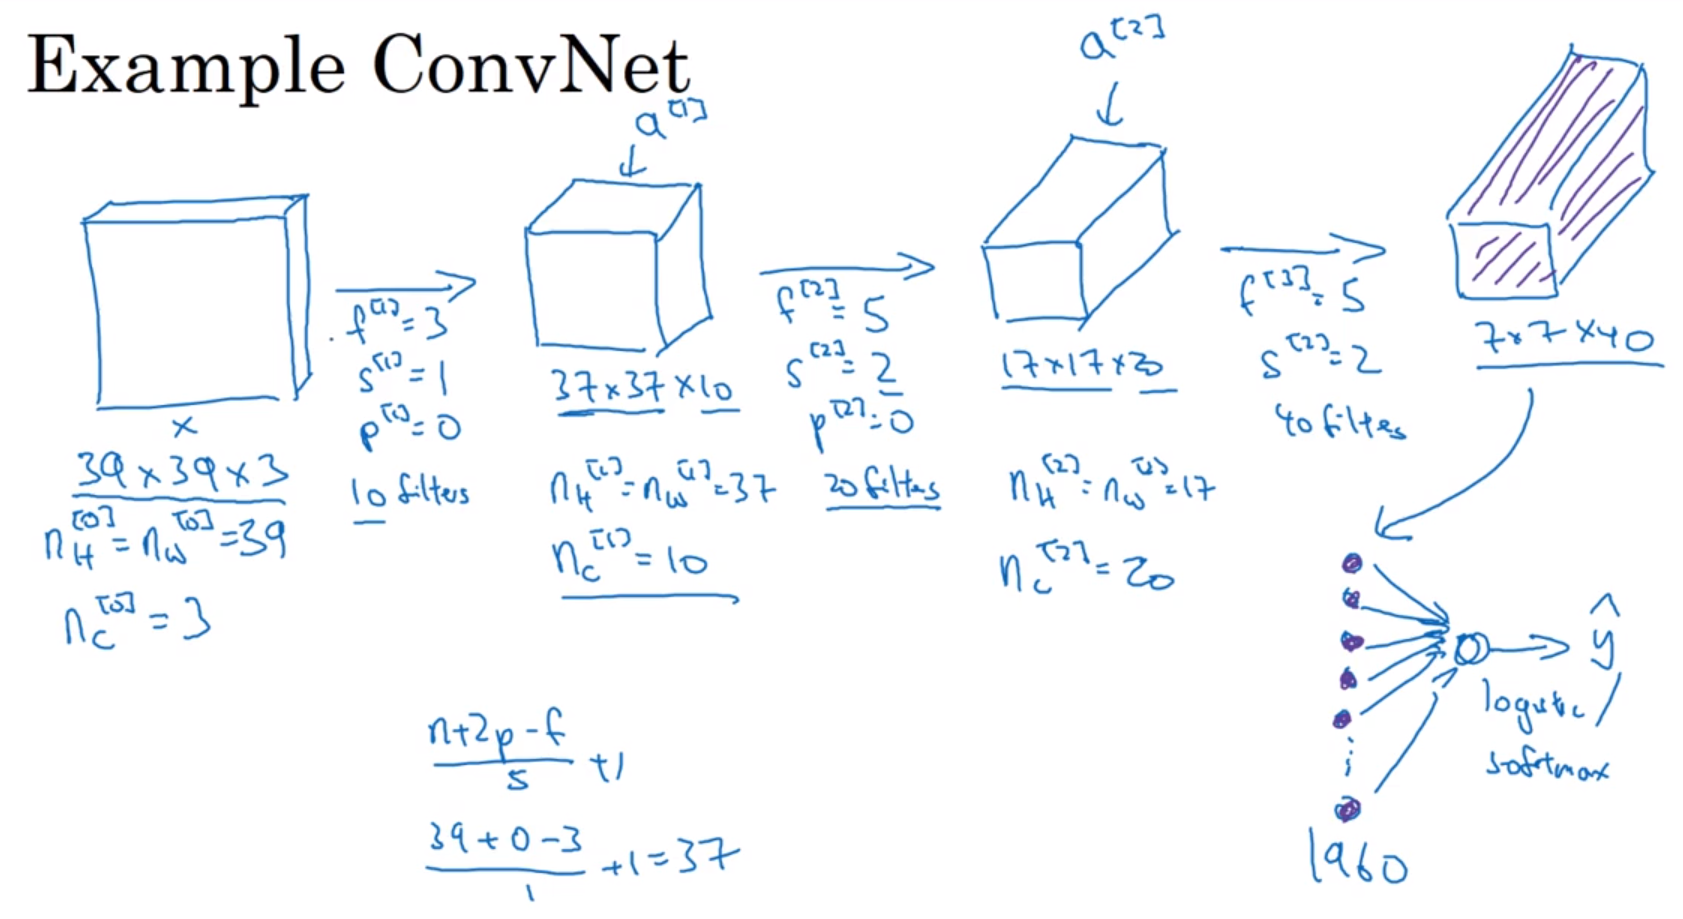 Example ConvNet
a^[1]
a^[2]
x
39 × 39 × 3
n_H^[0] = n_W^[0] = 39
n_C^[0] = 3
f^[1] = 3
s^[1] = 1
p^[1] = 0
10 filters
37 × 37 × 10
n_H^[1] = n_W^[1] = 37
n_C^[1] = 10
f^[2] = 5
s^[2] = 2
p^[2] = 0
20 filters
17 × 17 × 20
n_H^[2] = n_W^[2] = 17
n_C^[2] = 20
f^[3] = 5
s^[2] = 2
40 filters
7 × 7 × 40
1960
ŷ
logistic /
softmax
(n+2p-f)/s +1
(39+0-3)/1 +1 = 37